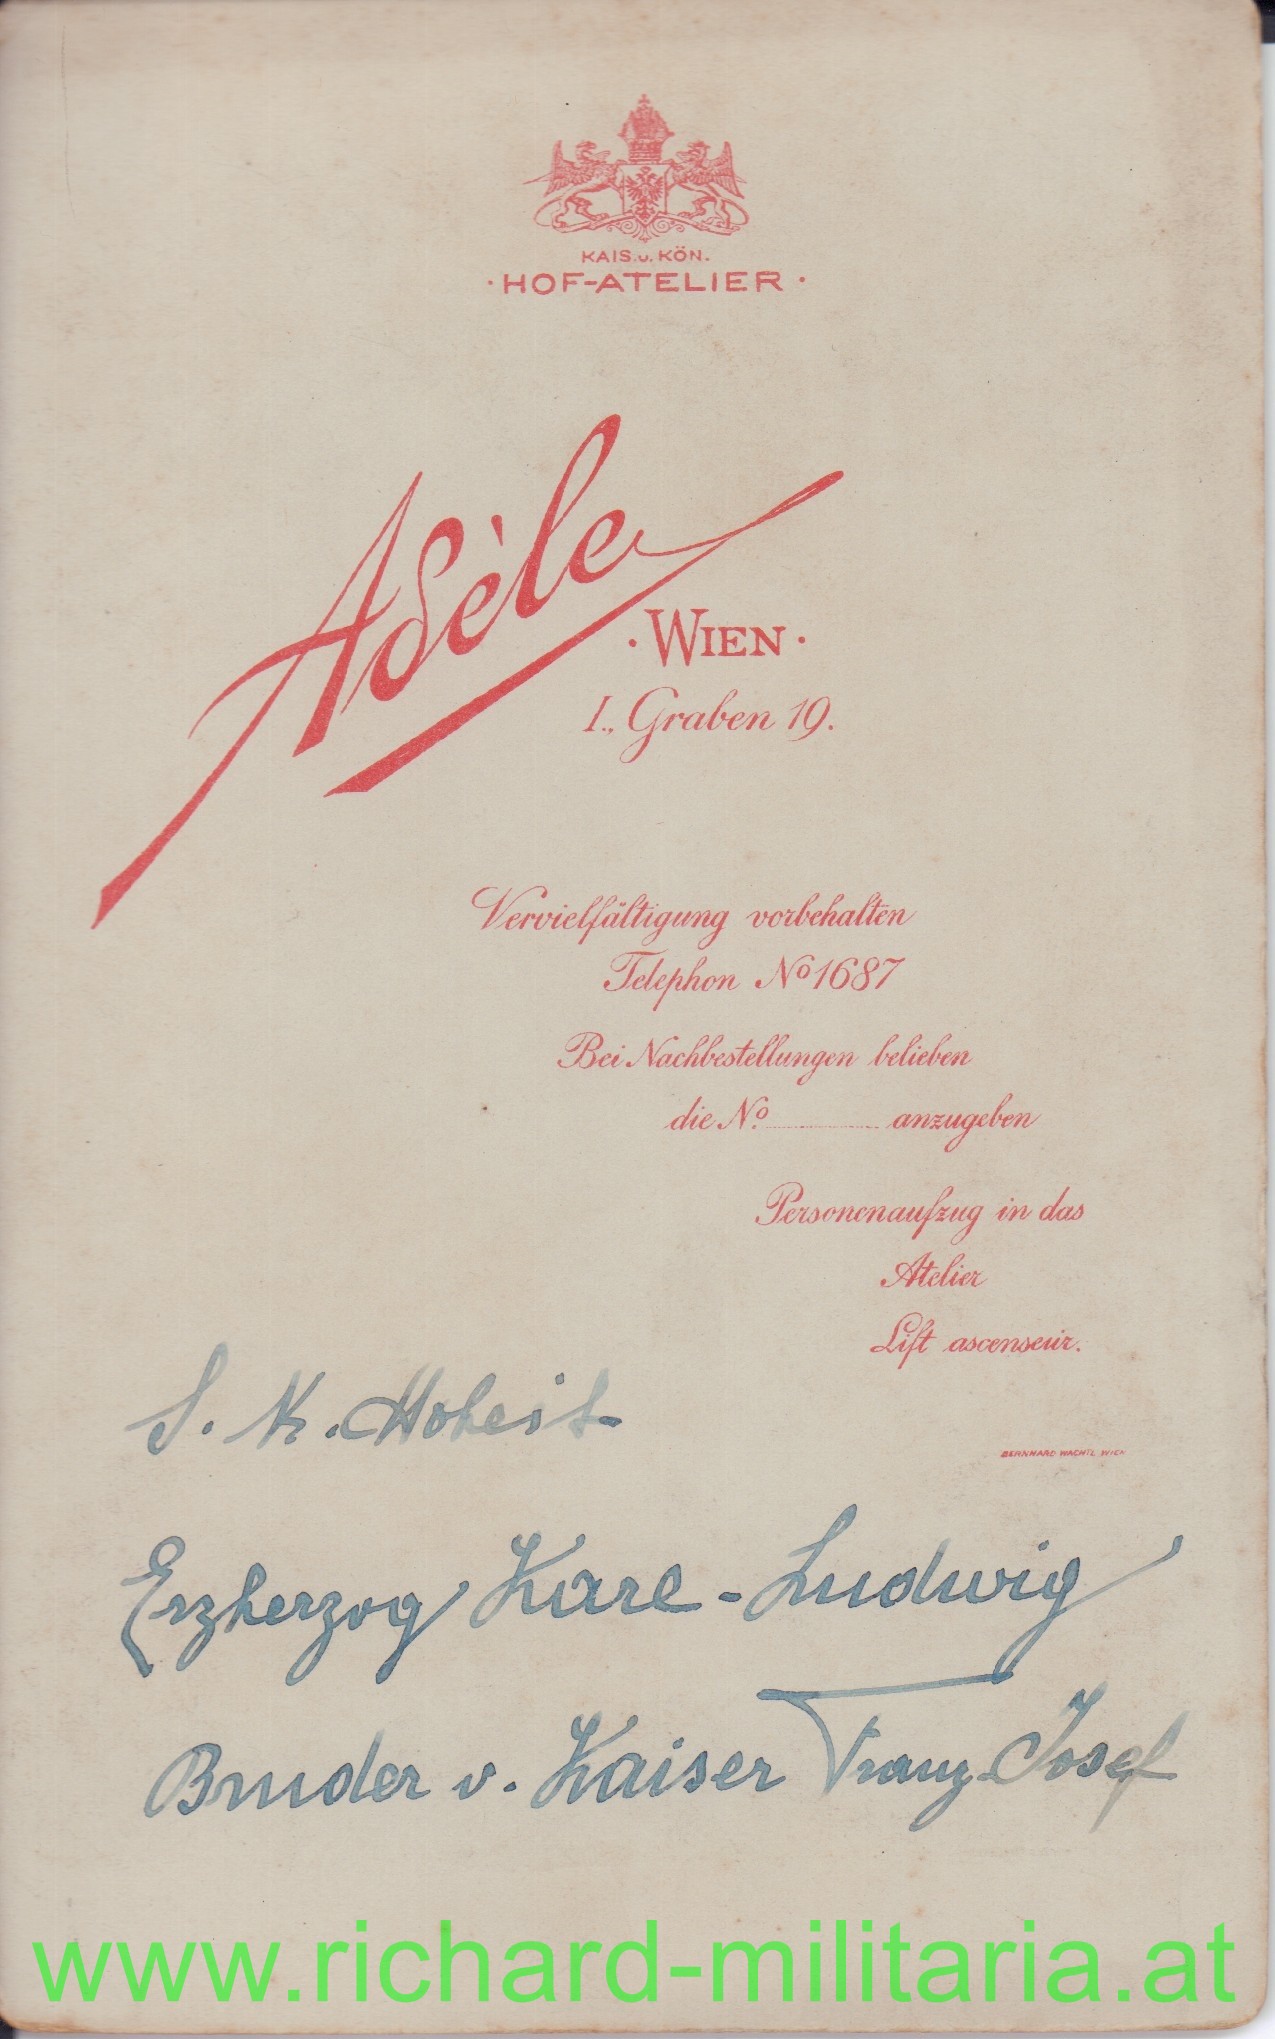 KAIS. u. KÖN.
· HOF-ATELIER ·
Adèle
· WIEN ·
I., Graben 19.
Vervielfältigung vorbehalten
Telephon No 1687
Bei Nachbestellungen belieben
die No. ............ anzugeben
Personenaufzug in das
Atelier
Lift ascenseur.
BERNHARD WACHTL WIEN
S. K. Hoheit
Erzherzog Karl-Ludwig
Bruder v. Kaiser Franz-Josef
www.richard-militaria.at